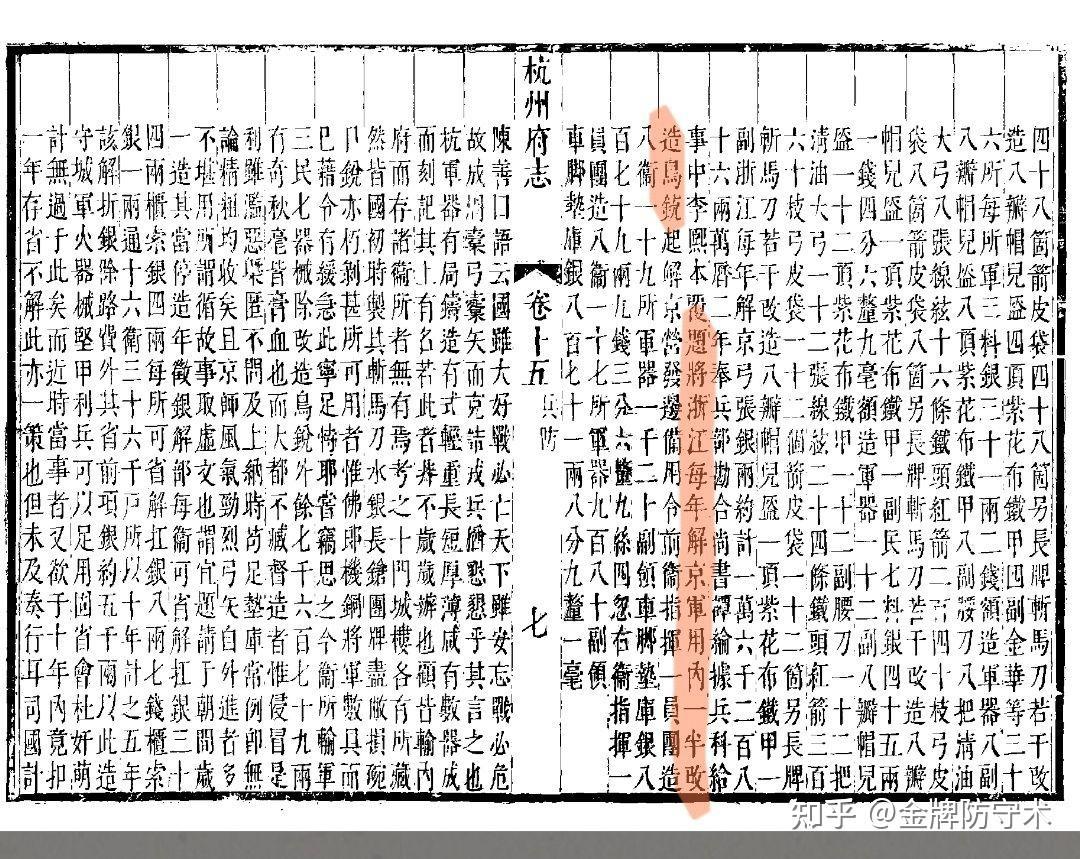 四十八箇箭皮袋四十八箇另長牌斬馬刀若干改
造八瓣帽兒盔四頂紫花布鐵甲四副金華等三十
六所每所軍三料銀三十一兩二錢額造軍器八副
八瓣帽兒盔八頂紫花布鐵甲八副腰刀八把清油
大弓八張線絃十六條鐵頭紅箭二百四十枝弓皮
袋八箇箭皮袋八箇另長牌斬馬刀若干改造八瓣
帽兒盔一項紫花布鐵甲一副民七料銀四十五兩
一錢四分六釐九毫額造軍器一十二副八瓣帽兒
盔一十二頂紫花布鐵甲一十二副腰刀一十二把
清油大弓一十二張線絃二十四條鐵頭紅箭三百
六十枝弓皮袋一十二箇箭皮袋一十二箇另長牌
斬馬刀若干改造八瓣帽兒盔一項紫花布鐵甲一
副浙江每年解京弓張銀兩約計一萬六千二百八
十六兩萬曆二年奉兵部勘合尚書譚綸據兵科給
事中李熙本覆題將浙江每年解京軍用內一半改
造鳥銃起解京營發邊備用今前衛指揮一員團造
八衛一十九所軍器一千二十副領車腳墊庫銀八
百七十九兩九錢三分六釐九絲四忽右衛指揮一
員團造八衛一十七所軍器九百八十副領
車腳墊庫銀八百七十一兩八分九釐一毫
杭州府志 卷十五 兵防 七
陳善曰語云國雖大好戰必亡天下雖安忘戰必危
故成周櫜弓櫜矢而克詰戎兵猶懇懇乎其言之也
杭軍器有局鑄造有式輕重長短厚薄咸有數器成
而刻記其上有名若此者非不歲辦也顧皆輸內
府而存諸衛所者無有焉考之十門城樓各有所藏
然皆國初時製其斬馬刀水銀長鎗團牌盡敝損琬
口銳亦朽剝甚所可用者惟佛郎機銅將軍數具而
已藉令有緩急此寧足恃耶嘗竊思之今衛所輸軍
三民七器械除改造鳥銳外餘七千六百七十九兩
有奇秋毫皆膏血也而大都不臧督造者惟侵冒是
利雖濫惡槩匿不問及上納時苟足墊庫常例卽無
論精粗均收矣且京師風氣勁烈弓矢自外進者多
不堪用所謂循故事取虛文也謂宜題請于朝間歲
一造其當停造年徵銀解部每衛可省解扛銀三十
四兩櫃索銀四兩每所可省解扛銀八兩七錢櫃索
銀一兩通十六衛三十六千戶所以十年計之五年
該解折銀除路費外其省前項銀約五千兩以此造
守城軍火器械堅甲利兵可以足用固省會杜奸萌
計無過于此矣而近時當事者又欲于十年內竟扣
一年存省不解此亦一策也但未及奏行耳司國計
知乎 @金牌防守术